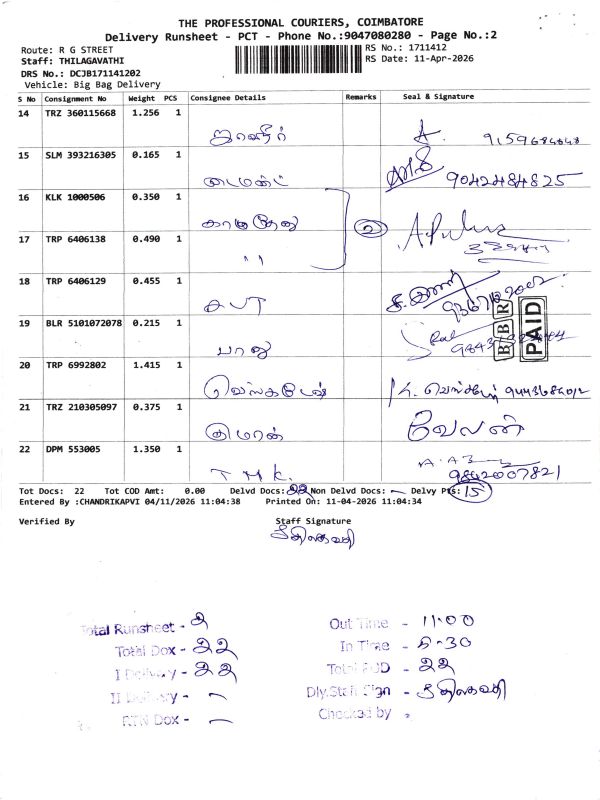 THE PROFESSIONAL COURIERS, COIMBATORE
Delivery Runsheet - PCT - Phone No.:9047080280 - Page No.:2
Route: R G STREET
RS No.: 1711412
Staff: THILAGAVATHI
RS Date: 11-Apr-2026
DRS No.: DCJB171141202
Vehicle: Big Bag Delivery
S No Consignment No Weight PCS Consignee Details Remarks Seal & Signature
14 TRZ 360115668 1.256 1
15 SLM 393216305 0.165 1
9042484825
16 KLK 1000506 0.350 1
காமதேனு
17 TRP 6406138 0.490 1
"
18 TRP 6406129 0.455 1
சுபா
19 BLR 5101072078 0.215 1
பாலு
BBR PAID
20 TRP 6992802 1.415 1
21 TRZ 210305097 0.375 1
குமரன் வேலன்
22 DPM 553005 1.350 1
T M K. 9842007821
Tot Docs: 22 Tot COD Amt: 0.00 Delvd Docs: 22 Non Delvd Docs: Delvy Pts: 15
Entered By :CHANDRIKAPVI 04/11/2026 11:04:38 Printed On: 11-04-2026 11:04:34
Verified By Staff Signature
Total Runsheet - 2
Out Time - 11.00
Total Dox - 22
In Time - 5-30
I Delivery - 22
Total POD - 22
II Delivery -
Dly.Staff Sign - திலகவதி
RTN Dox -
Checked by